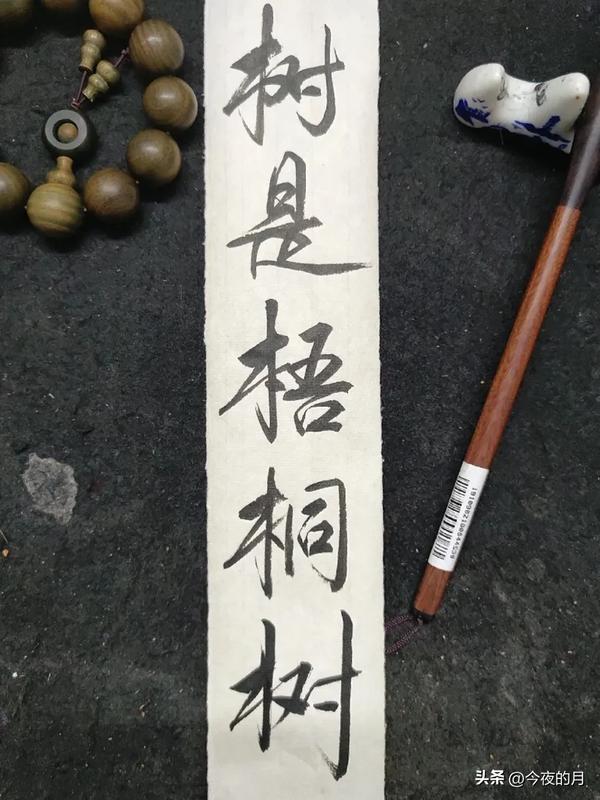 树是梧桐树
头条 @今夜的月